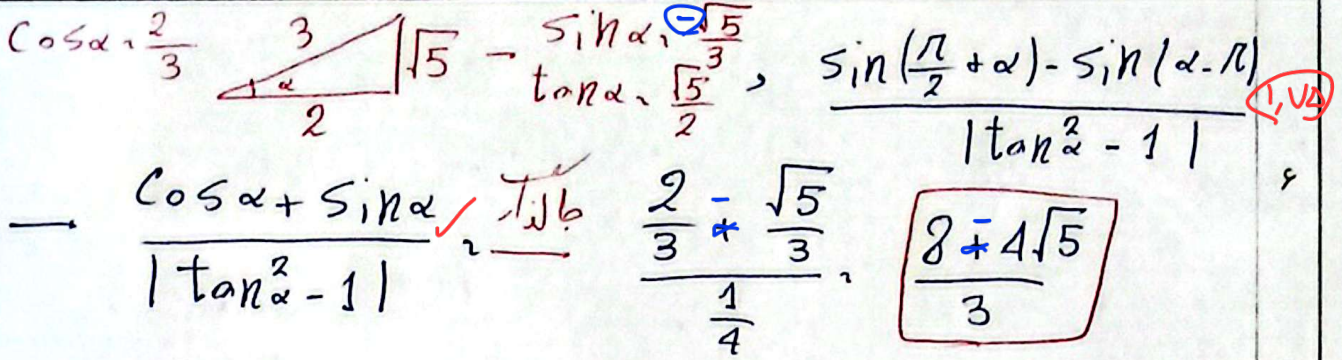 cosα = 2/3 3 α 2 √5 → sinα = -√5/3
tanα = √5/2 , sin(π/2 + α) - sin(α - π) / |tan²α - 1| ۱,۷۵
→ cosα + sinα / |tan²α - 1| = 2/3 - √5/3 / 1/4 = 8 - 4√5 / 3